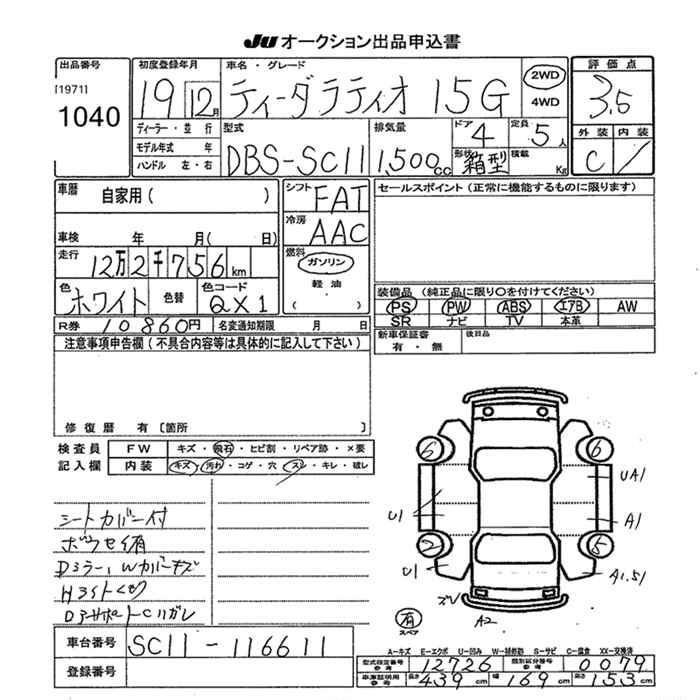 JU オークション出品申込書
出品番号
[1971]
1040
初度登録年月
19 12月
車名・グレード
ティーダラティオ 15G
2WD
4WD
評価点
3.5
外装 内装
C
ディーラー・並行
モデル年式 年
ハンドル 左・右
型式
DBS-SC11
排気量
1,500cc
ドア 4
定員 5人
形状 箱型
積載 Kg
車歴
自家用( )
車検 年 月( 日)
走行
12万2千756km
色 ホワイト
色替
色コード QX1
R券 10860円 名変通知期限 月 日
シフト FAT
冷房 AAC
燃料
ガソリン
軽油
( )
セールスポイント(正常に機能するものに限ります)
装備品 (純正品に限り〇を付けてください)
PS PW ABS エアB AW
SR ナビ TV 本革
新車保証書
有・無
後日品
注意事項申告欄(不具合内容等は具体的に記入して下さい)
修復歴 有〔箇所 〕
検査員
記入欄
FW キズ・飛石・ヒビ割・リペア跡・×要
内装 キズ・汚れ・コゲ・穴・スレ・キレ・破レ
シートカバー付
Dミラー,Wカバーキズ
6
6
2
5
U1
U1
UA1
A1
A1.51
A2
有
スペア
A-キズ E-エクボ U-凹み W-補修跡 S-サビ C-腐食 XX-交換済
車台番号 SC11-116611
登録番号
型式指定番号
参考
12726
類別区分番号
参考
0079
車庫証明用
参考
長さ 439cm 幅 169cm 高さ 153cm